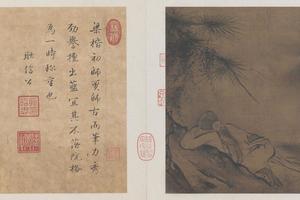 梁楷初師賈師古而筆力秀
勁譽擅出藍宜其不落院格
為一時稱重也
耿信公